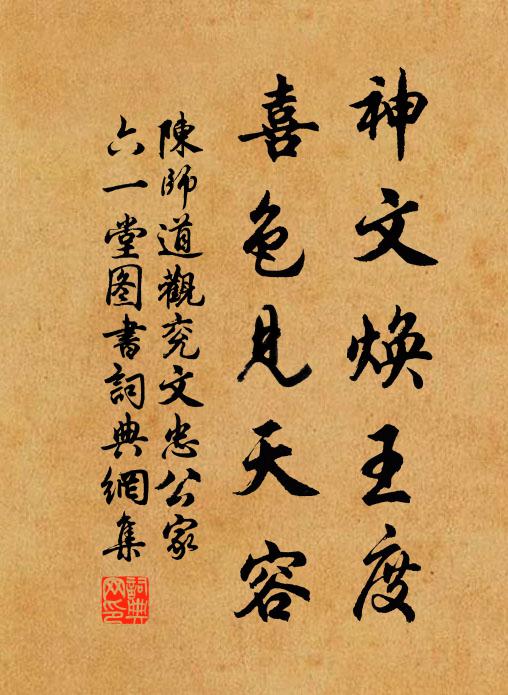 神文煥王度
喜色見天容
陳師道觀兗文忠公家
六一堂图書詞典網集
詞典网印